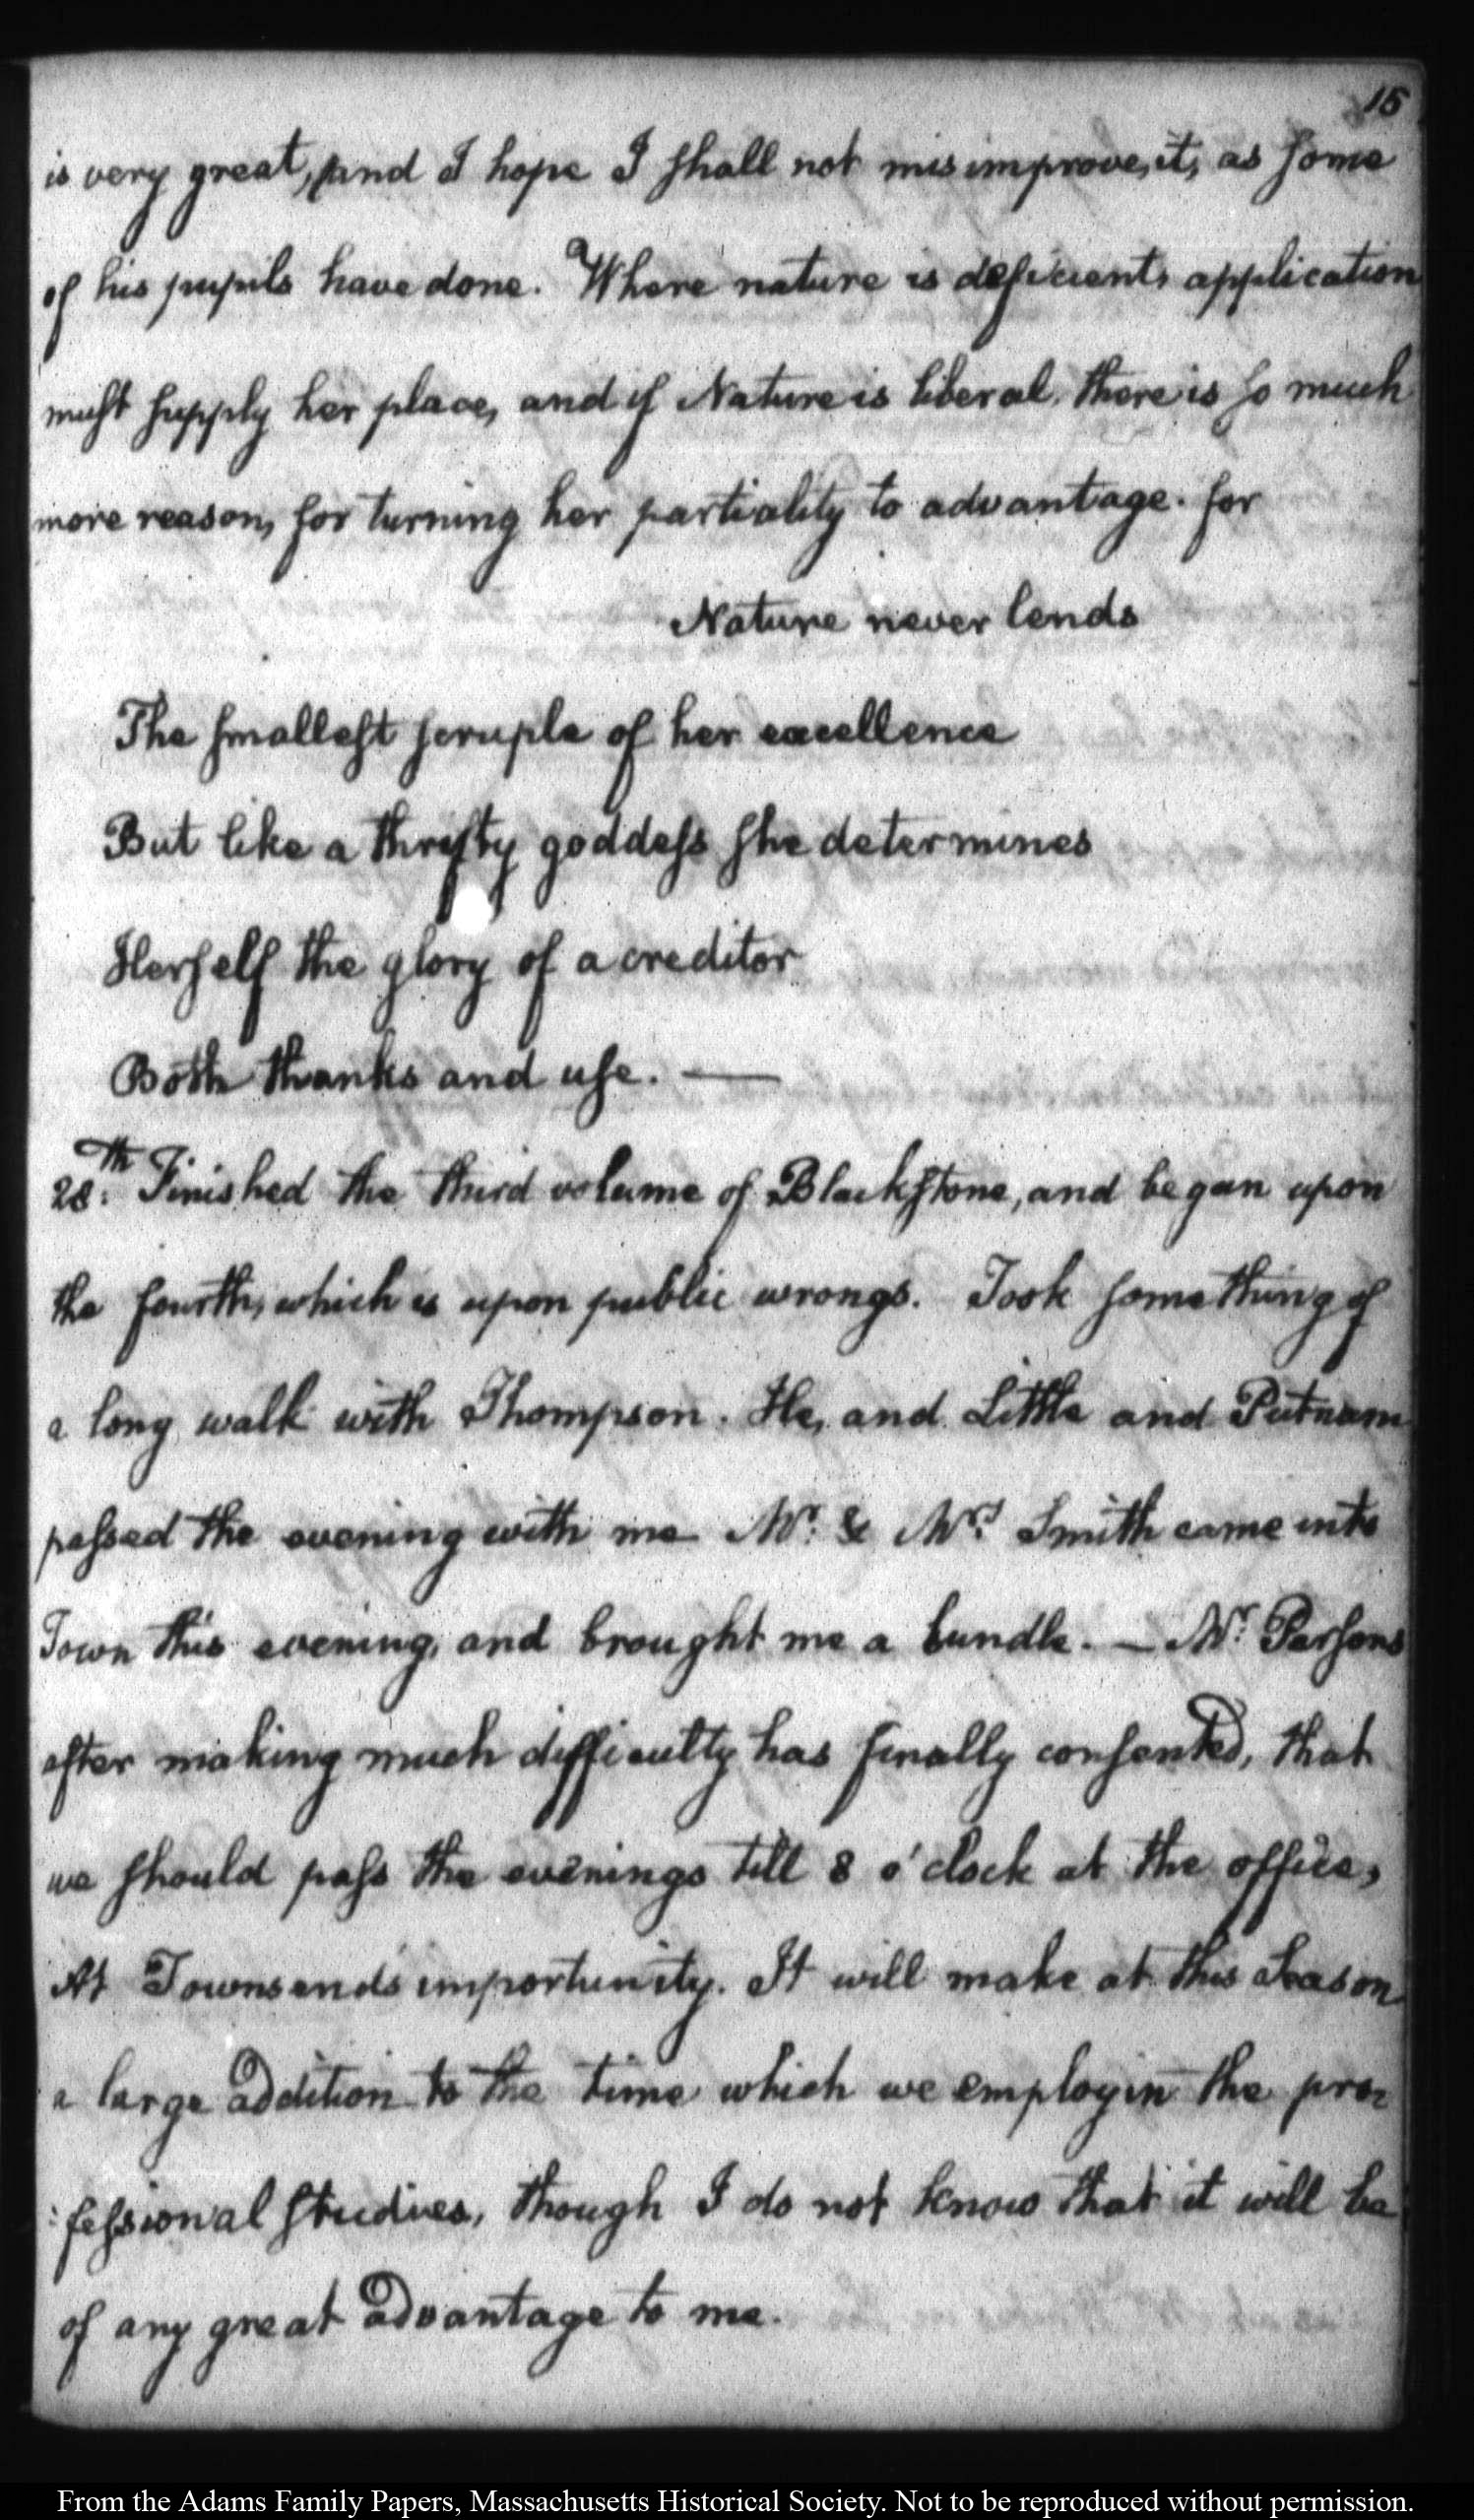 15
is very great, and I hope I shall not misimprove, it, as some
of his pupils have done. Where nature is deficient, application
must supply her place, and if Nature is liberal, there is so much
more reason, for turning her partiality to advantage. for
Nature never lends
The smallest scruple of her excellence
But like a thrifty goddess she determines
Herself the glory of a creditor
Both thanks and use. —
28th. Finished the third volume of Blackstone, and began upon
the fourth, which is upon public wrongs. Took something of
a long walk with Thompson. He, and Little and Putnam
passed the evening with me Mr. & Mrs. Smith came into
Town this evening, and brought me a bundle. — Mr. Parsons
after making much difficulty has finally consented, that
we should pass the evenings till 8 o'clock at the office,
At Townsends importunity. It will make at this Season
a large addition to the time which we employ in the pro:
:fessional studies, though I do not know that it will be
of any great advantage to me.
From the Adams Family Papers, Massachusetts Historical Society. Not to be reproduced without permission.